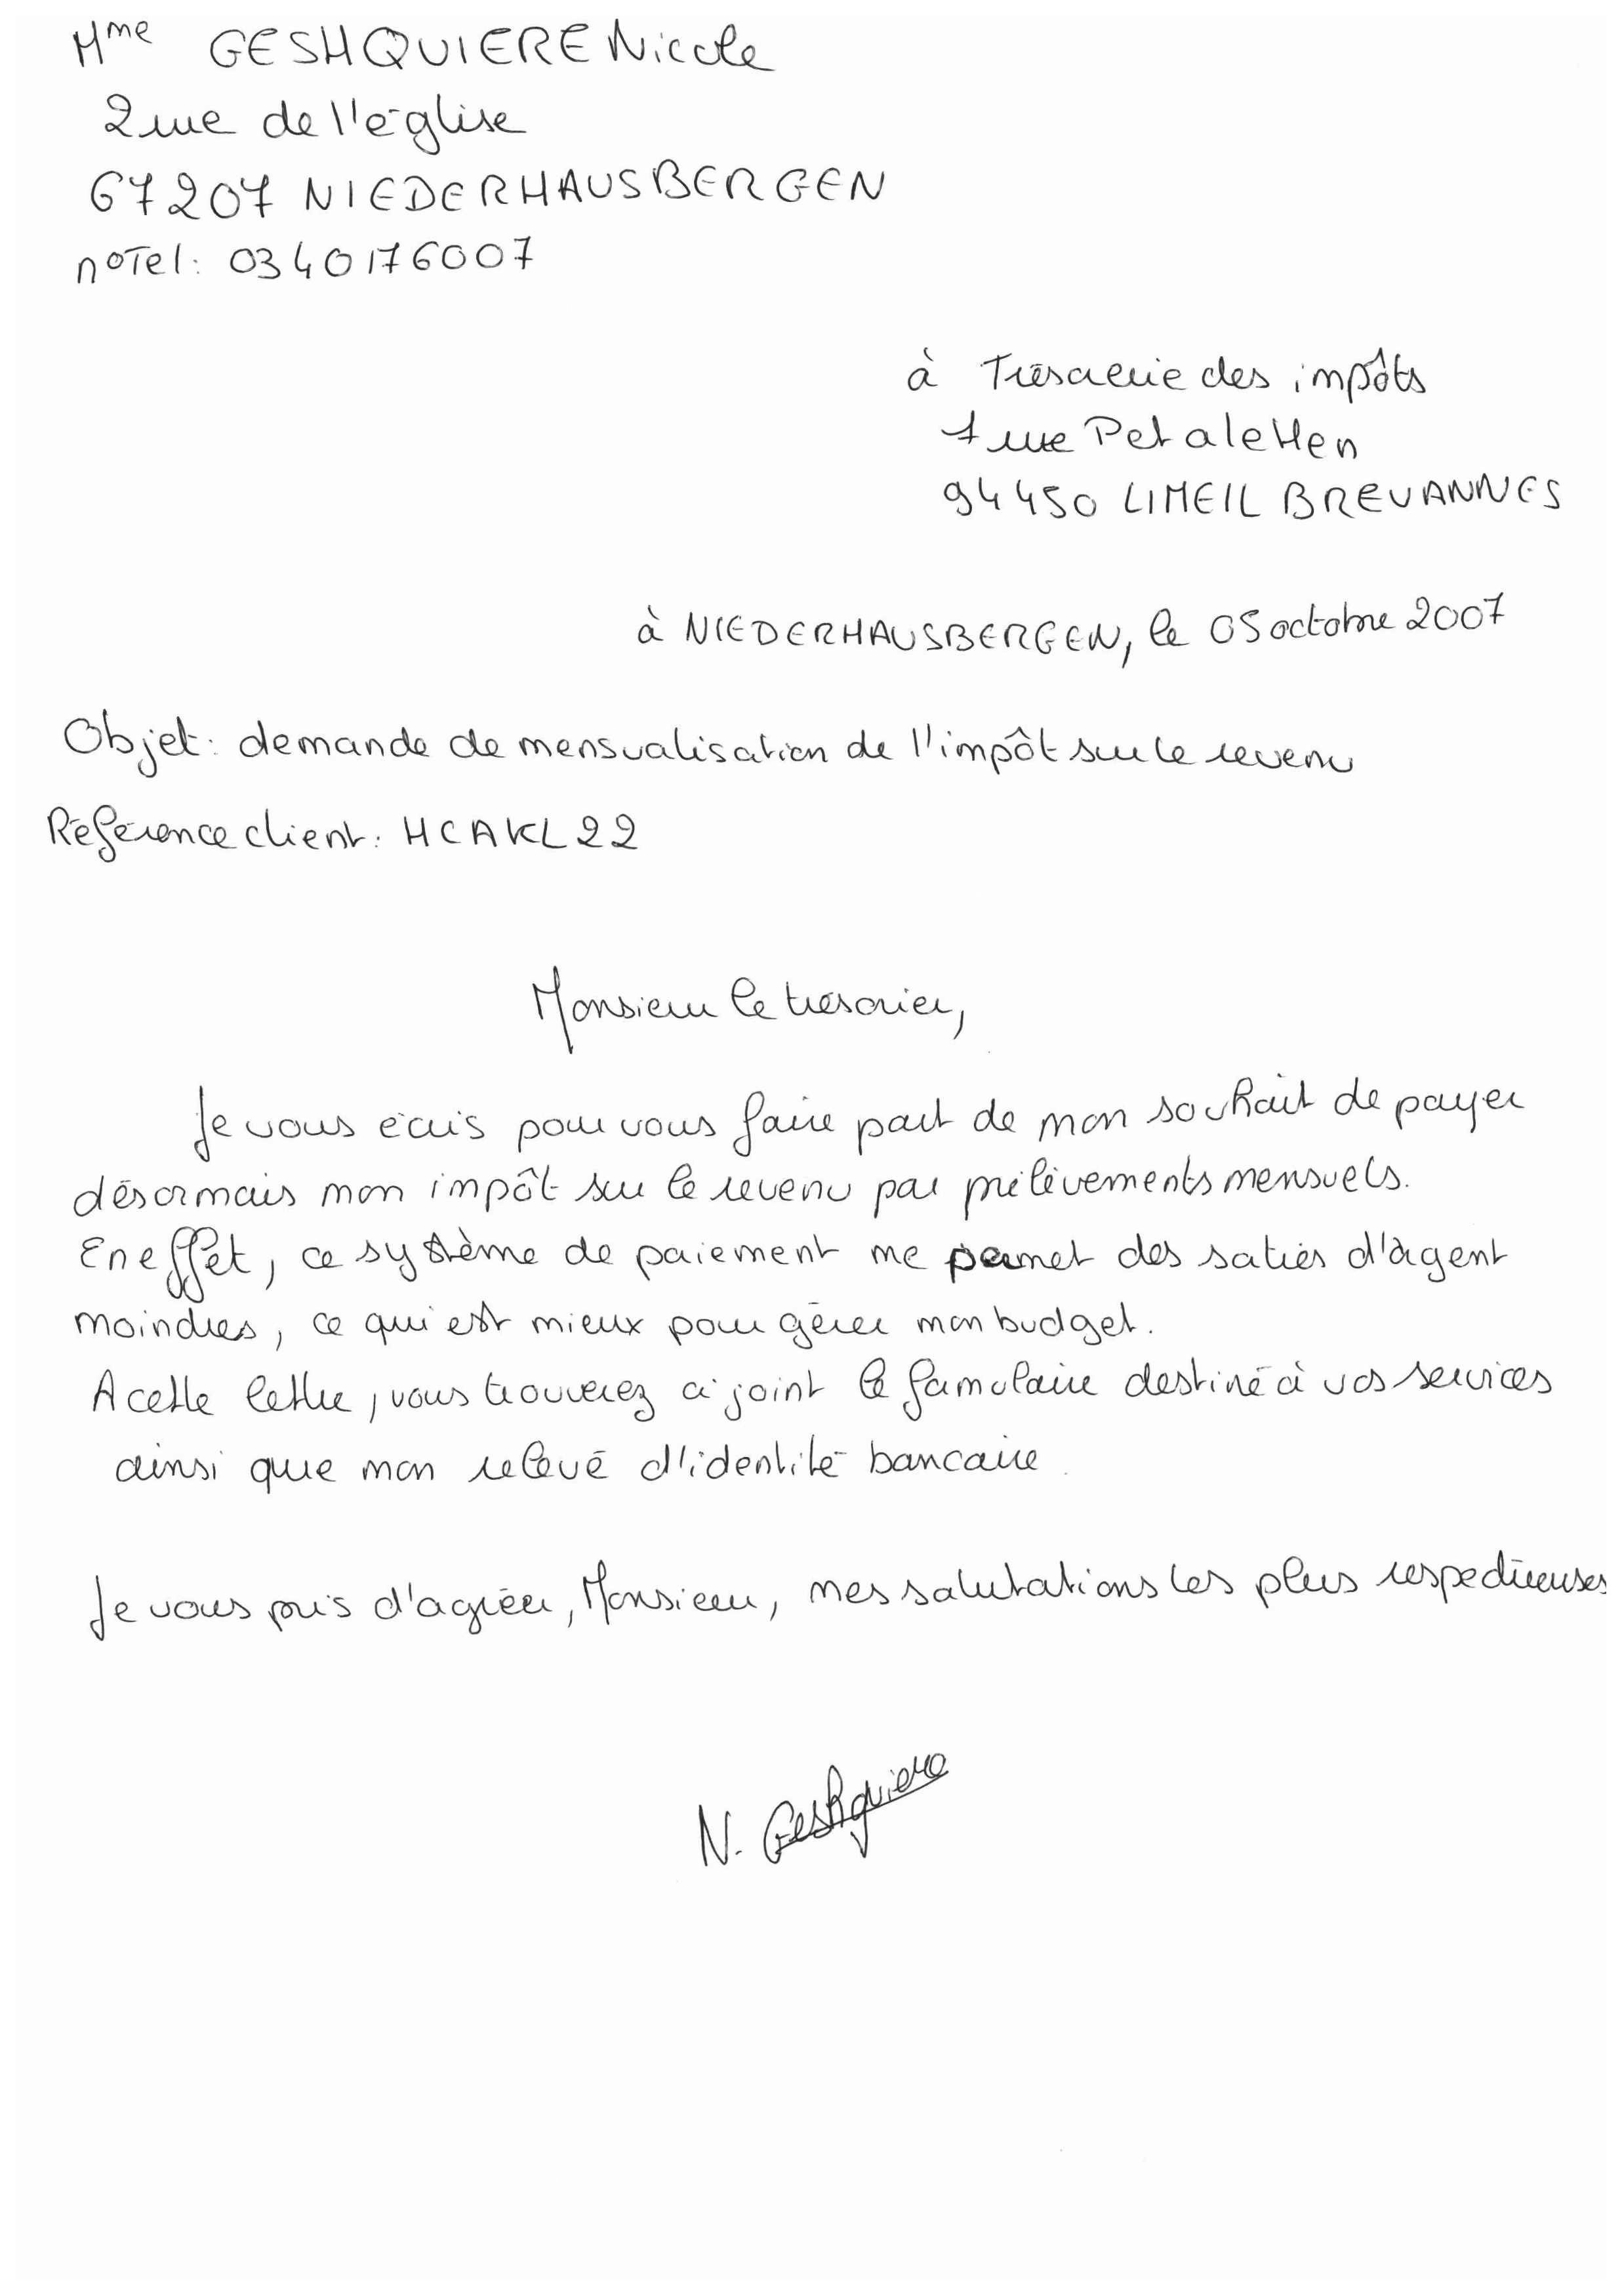 Mme GESHQUIERE Nicole
2 rue de l'église
67207 NIEDERHAUSBERGEN
n° Tel : 0340176007
à Trésorerie des impôts
1 rue Pet aletten
94450 LIMEIL BREVANNES
à NIEDERHAUSBERGEN, le 05 octobre 2007
Objet : demande de mensualisation de l'impôt sur le revenu
Référence client : HCAKL22
Monsieur le trésorier,
Je vous écris pour vous faire part de mon souhait de payer
désormais mon impôt sur le revenu par prélèvements mensuels.
En effet, ce système de paiement me permet des saties d'argent
moindres, ce qui est mieux pour gérer mon budget.
A cette lettre, vous trouverez ci joint le formulaire destiné à vos services
ainsi que mon relevé d'identité bancaire.
Je vous pris d'agréer, Monsieur, mes salutations les plus respectueuses
N. Geshquiere